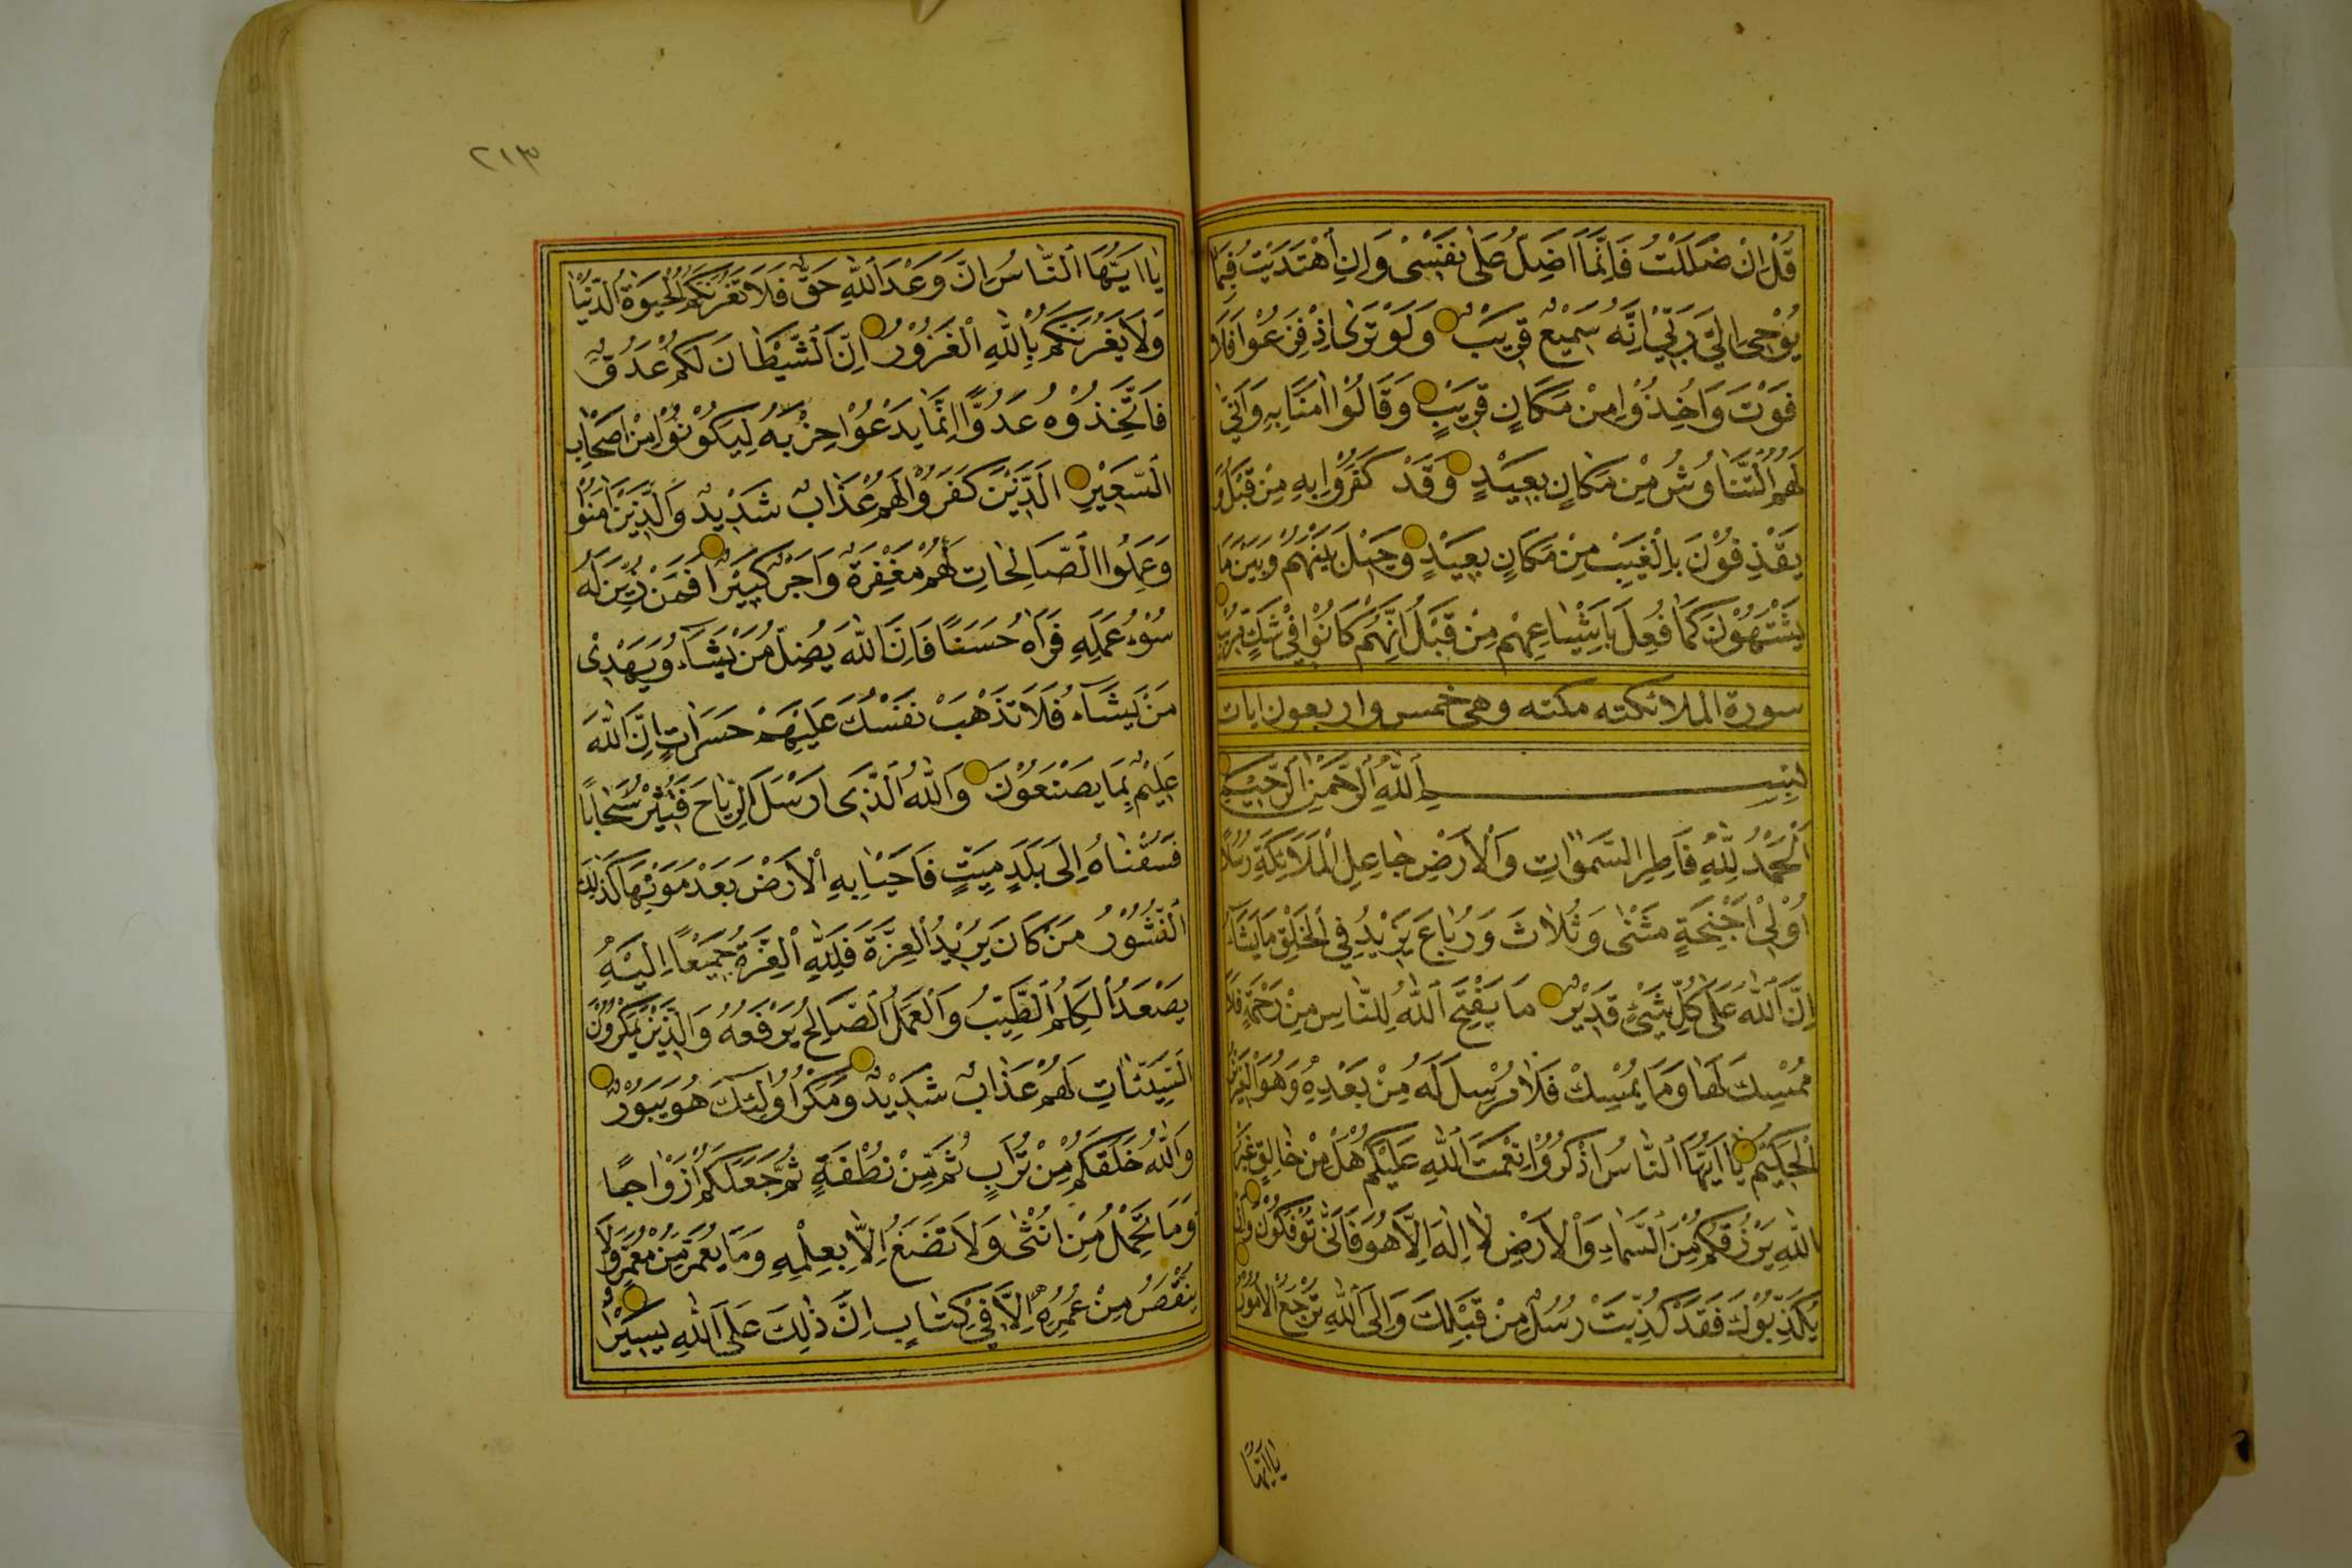 قُلْ اِنْ ضَلَلْتُ فَاِنَّمَا اَضِلُّ عَلٰى نَفْسٖى وَاِنِ اهْتَدَيْتُ فَبِمَا
يُوْحٖى اِلَيَّ رَبّٖى اِنَّهُ سَمٖيعٌ قَرٖيبٌ وَلَوْ تَرٰى اِذْ فَزِعُوا فَلَا
فَوْتَ وَاُخِذُوا مِنْ مَكَانٍ قَرٖيبٍ وَقَالُوا اٰمَنَّا بِهِ وَاَنّٰى
لَهُمُ التَّنَاوُشُ مِنْ مَكَانٍ بَعٖيدٍ وَقَدْ كَفَرُوا بِهِ مِنْ قَبْلُ وَ
يَقْذِفُوْنَ بِالْغَيْبِ مِنْ مَكَانٍ بَعٖيدٍ وَحٖيلَ بَيْنَهُمْ وَبَيْنَ مَا
يَشْتَهُوْنَ كَمَا فُعِلَ بِاَشْيَاعِهِمْ مِنْ قَبْلُ اِنَّهُمْ كَانُوا فٖى شَكٍّ مُرٖيبٍ
سورة الملائكته مكته وهى خمس واربعون ايات
بِسْــــمِ اللّٰهِ الرَّحْمٰنِ الرَّحٖيمِ
اَلْحَمْدُ لِلّٰهِ فَاطِرِ السَّمٰوَاتِ وَالْاَرْضِ جَاعِلِ الْمَلَائِكَةِ رُسُلًا
اُوْلٖى اَجْنِحَةٍ مَثْنٰى وَثُلَاثَ وَرُبَاعَ يَزٖيدُ فِي الْخَلْقِ مَا يَشَاءُ
اِنَّ اللّٰهَ عَلٰى كُلِّ شَيْئٍ قَدٖيرٌ مَا يَفْتَحِ اللّٰهُ لِلنَّاسِ مِنْ رَحْمَةٍ فَلَا
مُمْسِكَ لَهَا وَمَا يُمْسِكْ فَلَا مُرْسِلَ لَهُ مِنْ بَعْدِهٖ وَهُوَ الْعَزٖيزُ
الْحَكٖيمُ يَا اَيُّهَا النَّاسُ اذْكُرُوا نِعْمَتَ اللّٰهِ عَلَيْكُمْ هَلْ مِنْ خَالِقٍ غَيْرُ
اللّٰهِ يَرْزُقُكُمْ مِنَ السَّمَاءِ وَالْاَرْضِ لَا اِلٰهَ اِلَّا هُوَ فَاَنّٰى تُؤْفَكُوْنَ وَاِنْ
يُكَذِّبُوْكَ فَقَدْ كُذِّبَتْ رُسُلٌ مِنْ قَبْلِكَ وَاِلَى اللّٰهِ تُرْجَعُ الْاُمُوْرُ
يَا اَيُّهَا
٢١٣
يَا اَيُّهَا النَّاسُ اِنَّ وَعْدَ اللّٰهِ حَقٌّ فَلَا تَغُرَّنَّكُمُ الْحَيٰوةُ الدُّنْيَا
وَلَا يَغُرَّنَّكُمْ بِاللّٰهِ الْغَرُوْرُ اِنَّ الشَّيْطَانَ لَكُمْ عَدُوٌّ
فَاتَّخِذُوْهُ عَدُوًّا اِنَّمَا يَدْعُوْا حِزْبَهُ لِيَكُوْنُوْا مِنْ اَصْحَابِ
السَّعٖيرِ اَلَّذٖينَ كَفَرُوْا لَهُمْ عَذَابٌ شَدٖيدٌ وَالَّذٖينَ اٰمَنُوْا
وَعَمِلُوا الصَّالِحَاتِ لَهُمْ مَغْفِرَةٌ وَاَجْرٌ كَبٖيرٌ اَفَمَنْ زُيِّنَ لَهُ
سُوْءُ عَمَلِهِ فَرَاٰهُ حَسَنًا فَاِنَّ اللّٰهَ يُضِلُّ مَنْ يَشَاءُ وَيَهْدٖى
مَنْ يَشَاءُ فَلَا تَذْهَبْ نَفْسُكَ عَلَيْهِمْ حَسَرَاتٍ اِنَّ اللّٰهَ
عَلٖيمٌ بِمَا يَصْنَعُوْنَ وَاللّٰهُ الَّذٖى اَرْسَلَ الرِّيَاحَ فَتُثٖيرُ سَحَابًا
فَسُقْنَاهُ اِلٰى بَلَدٍ مَيِّتٍ فَاَحْيَيْنَا بِهِ الْاَرْضَ بَعْدَ مَوْتِهَا كَذٰلِكَ
النُّشُوْرُ مَنْ كَانَ يُرٖيدُ الْعِزَّةَ فَلِلّٰهِ الْعِزَّةُ جَمٖيعًا اِلَيْهِ
يَصْعَدُ الْكَلِمُ الطَّيِّبُ وَالْعَمَلُ الصَّالِحُ يَرْفَعُهُ وَالَّذٖينَ يَمْكُرُوْنَ
السَّيِّئَاتِ لَهُمْ عَذَابٌ شَدٖيدٌ وَمَكْرُ اُولٰئِكَ هُوَ يَبُوْرُ
وَاللّٰهُ خَلَقَكُمْ مِنْ تُرَابٍ ثُمَّ مِنْ نُطْفَةٍ ثُمَّ جَعَلَكُمْ اَزْوَاجًا
وَمَا تَحْمِلُ مِنْ اُنْثٰى وَلَا تَضَعُ اِلَّا بِعِلْمِهِ وَمَا يُعَمَّرُ مِنْ مُعَمَّرٍ وَلَا
يُنْقَصُ مِنْ عُمُرِهِ اِلَّا فٖى كِتَابٍ اِنَّ ذٰلِكَ عَلَى اللّٰهِ يَسٖيرٌ